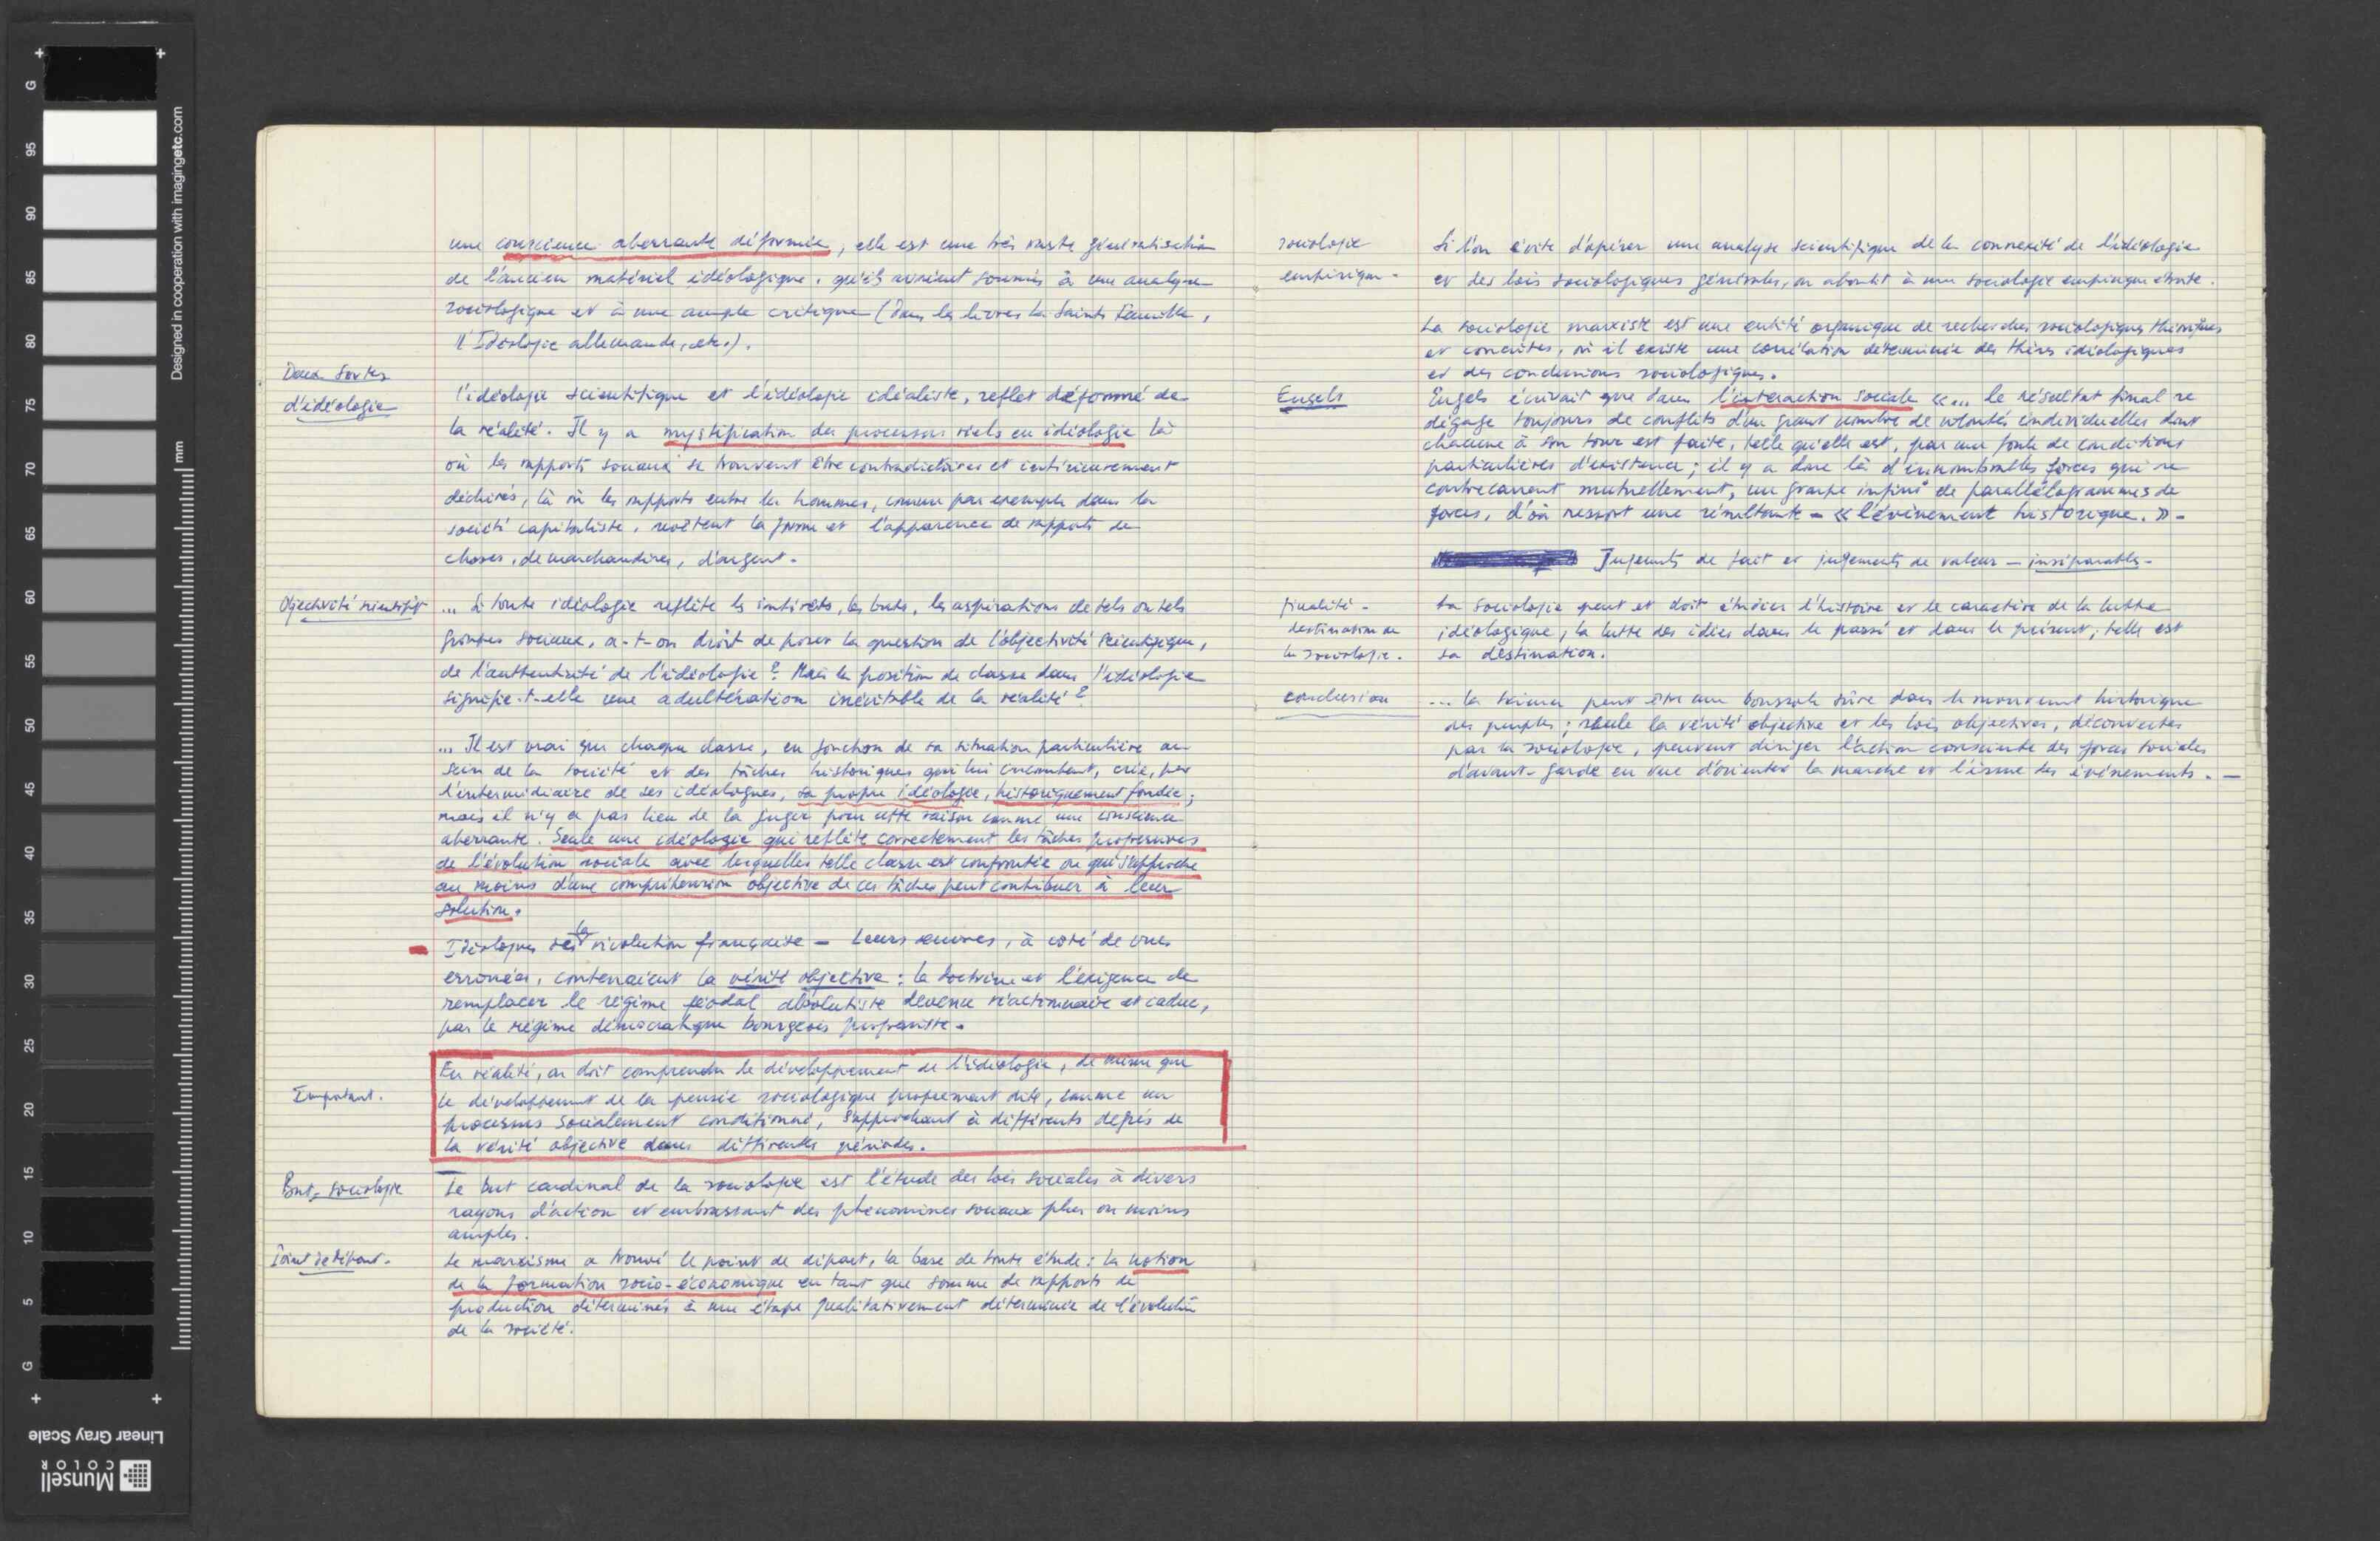 une conscience aberrante déformée, elle est une très vaste généralisation
de l'ancien matériel idéologique, qu'ils avaient soumis à une analyse
sociologique et à une ample critique (Dans les livres La Sainte Famille,
l'Idéologie allemande, etc.).
Deux sortes
d'idéologie
l'idéologie scientifique et l'idéologie idéaliste, reflet déformé de
la réalité. Il y a mystification des processus réels en idéologie là
où les rapports sociaux se trouvent être contradictoires et intérieurement
déchirés, là où les rapports entre les hommes, comme par exemple dans la
société capitaliste, revêtent la forme et l'apparence de rapports de
choses, de marchandises, d'argent.
Objectivité scientif
... Si toute idéologie reflète les intérêts, les buts, les aspirations de tels ou tels
groupes sociaux, a-t-on droit de poser la question de l'objectivité scientifique,
de l'authenticité de l'idéologie? Mais la position de classe dans l'idéologie
signifie-t-elle une adultération inévitable de la réalité?
... Il est vrai que chaque classe, en fonction de sa situation particulière au
sein de la société et des tâches historiques qui lui incombent, crée, par
l'intermédiaire de ses idéologues, sa propre idéologie, historiquement fondée;
mais il n'y a pas lieu de la juger pour cette raison comme une conscience
aberrante. Seule une idéologie qui reflète correctement les tâches progressives
de l'évolution sociale avec lesquelles telle classe est confrontée ou qui s'approche
au moins d'une compréhension objective de ces tâches peut contribuer à leur
solution.
Idéologues de la révolution française - Leurs œuvres, à côté de vues
erronées, contenaient la vérité objective: la doctrine et l'exigence de
remplacer le régime féodal absolutiste devenu réactionnaire et caduc,
par le régime démocratique bourgeois progressiste.
Important.
En réalité, on doit comprendre le développement de l'idéologie, de même que
le développement de la pensée sociologique proprement dite, comme un
processus socialement conditionné, s'approchant à différents degrés de
la vérité objective dans différentes périodes.
But, sociologie
Le but cardinal de la sociologie est l'étude des lois sociales à divers
rayons d'action et embrassant des phénomènes sociaux plus ou moins
amples.
Point de départ.
Le marxisme a trouvé le point de départ, la base de toute étude: la notion
de la formation socio-économique en tant que somme de rapports de
production déterminés à une étape qualitativement déterminée de l'évolution
de la société.
sociologie
empirique.
Si l'on évite d'opérer une analyse scientifique de la connexité de l'idéologie
et des lois sociologiques générales, on aboutit à une sociologie empirique étroite.
La sociologie marxiste est une entité organique de recherches sociologiques théoriques
et concrètes, où il existe une corrélation déterminée des thèses idéologiques
et des conclusions sociologiques.
Engels
Engels écrivait que dans l'interaction sociale «... Le résultat final se
dégage toujours de conflits d'un grand nombre de volontés individuelles dont
chacune à son tour est faite, telle qu'elle est, par une foule de conditions
particulières d'existence; il y a donc là d'innombrables forces qui se
contrecarrent mutuellement, un groupe infini de parallélogrammes de
forces, d'où ressort une résultante - «l'événement historique.» -
Jugements de fait et jugements de valeur - inséparables -
finalité -
destination de
la sociologie.
La sociologie peut et doit étudier l'histoire et le caractère de la lutte
idéologique, la lutte des idées dans le passé et dans le présent; telle est
sa destination.
conclusion
... la science peut être une boussole sûre dans le mouvement historique
des peuples; seule la vérité objective et les lois objectives, découvertes
par la sociologie, peuvent diriger l'action consciente des forces sociales
d'avant-garde en vue d'orienter la marche et l'issue des événements. -
Designed in cooperation with imagingetc.com
mm
G
95
90
85
80
75
70
65
60
55
50
45
40
35
30
25
20
15
10
5
G
Linear Gray Scale
Munsell
COLOR